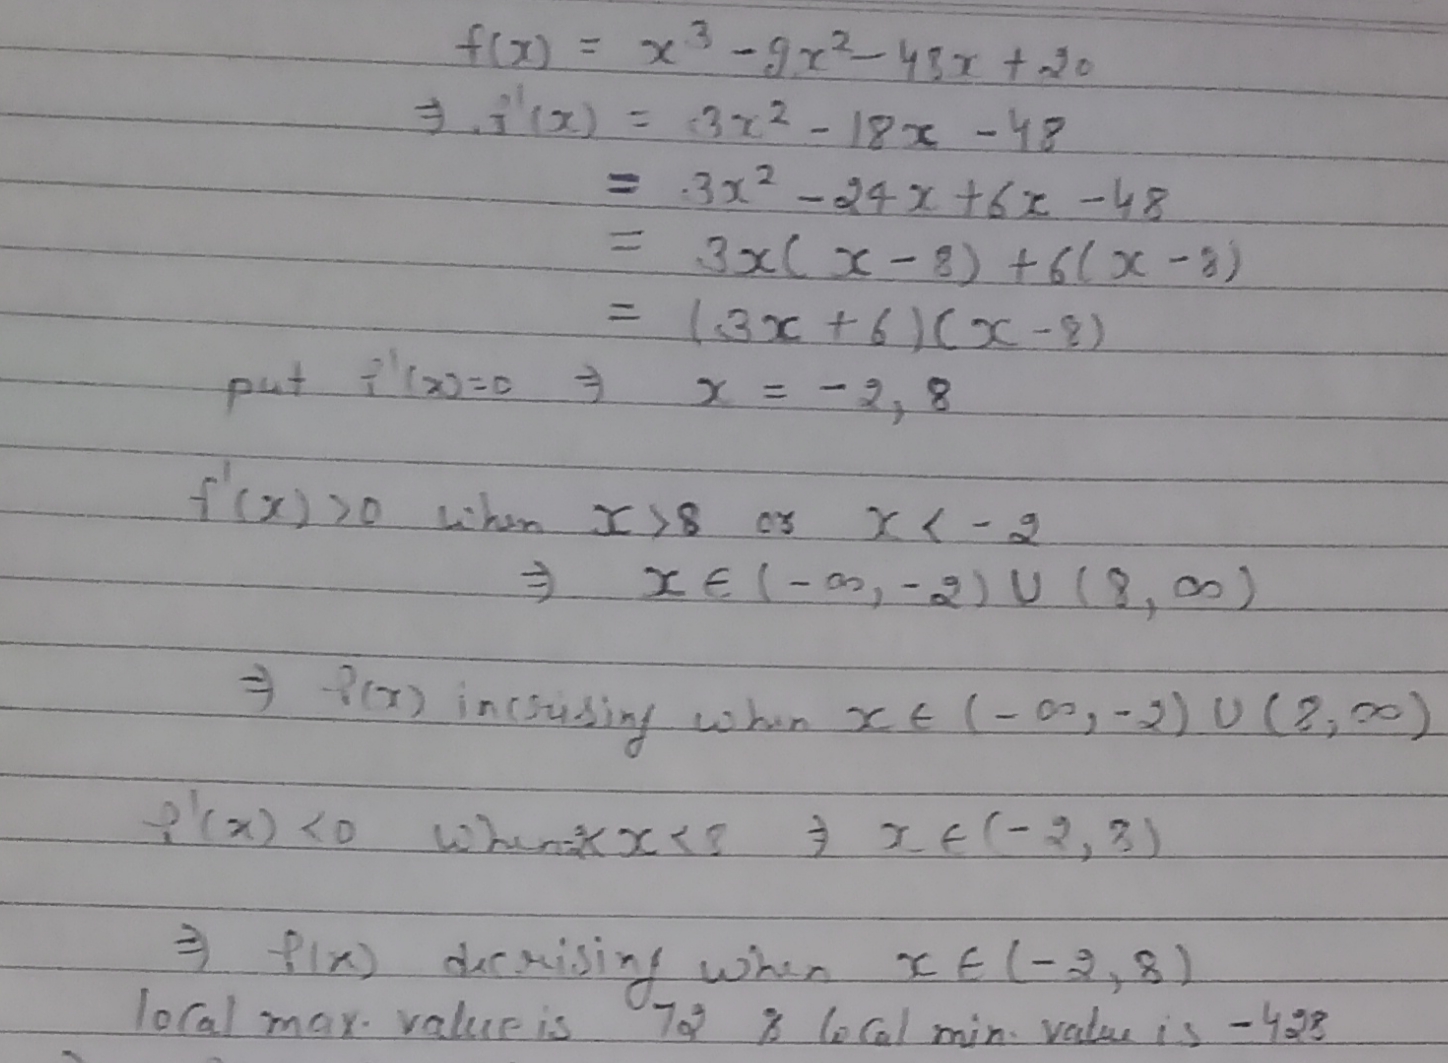 f(x) = x³ - 9x² - 48x + 20
⇒ f'(x) = 3x² - 18x - 48
= 3x² - 24x + 6x - 48
= 3x(x - 8) + 6(x - 8)
= (3x + 6)(x - 8)
put f'(x)=0 ⇒ x = -2, 8
f'(x) > 0 when x > 8 or x < -2
⇒ x ∈ (-∞, -2) ∪ (8, ∞)
⇒ f(x) incresing when x ∈ (-∞, -2) ∪ (8, ∞)
f'(x) < 0 when -2< x < 8 ⇒ x ∈ (-2, 8)
⇒ f(x) decreising when x ∈ (-2, 8)
local max. value is 72 & local min. value is -428